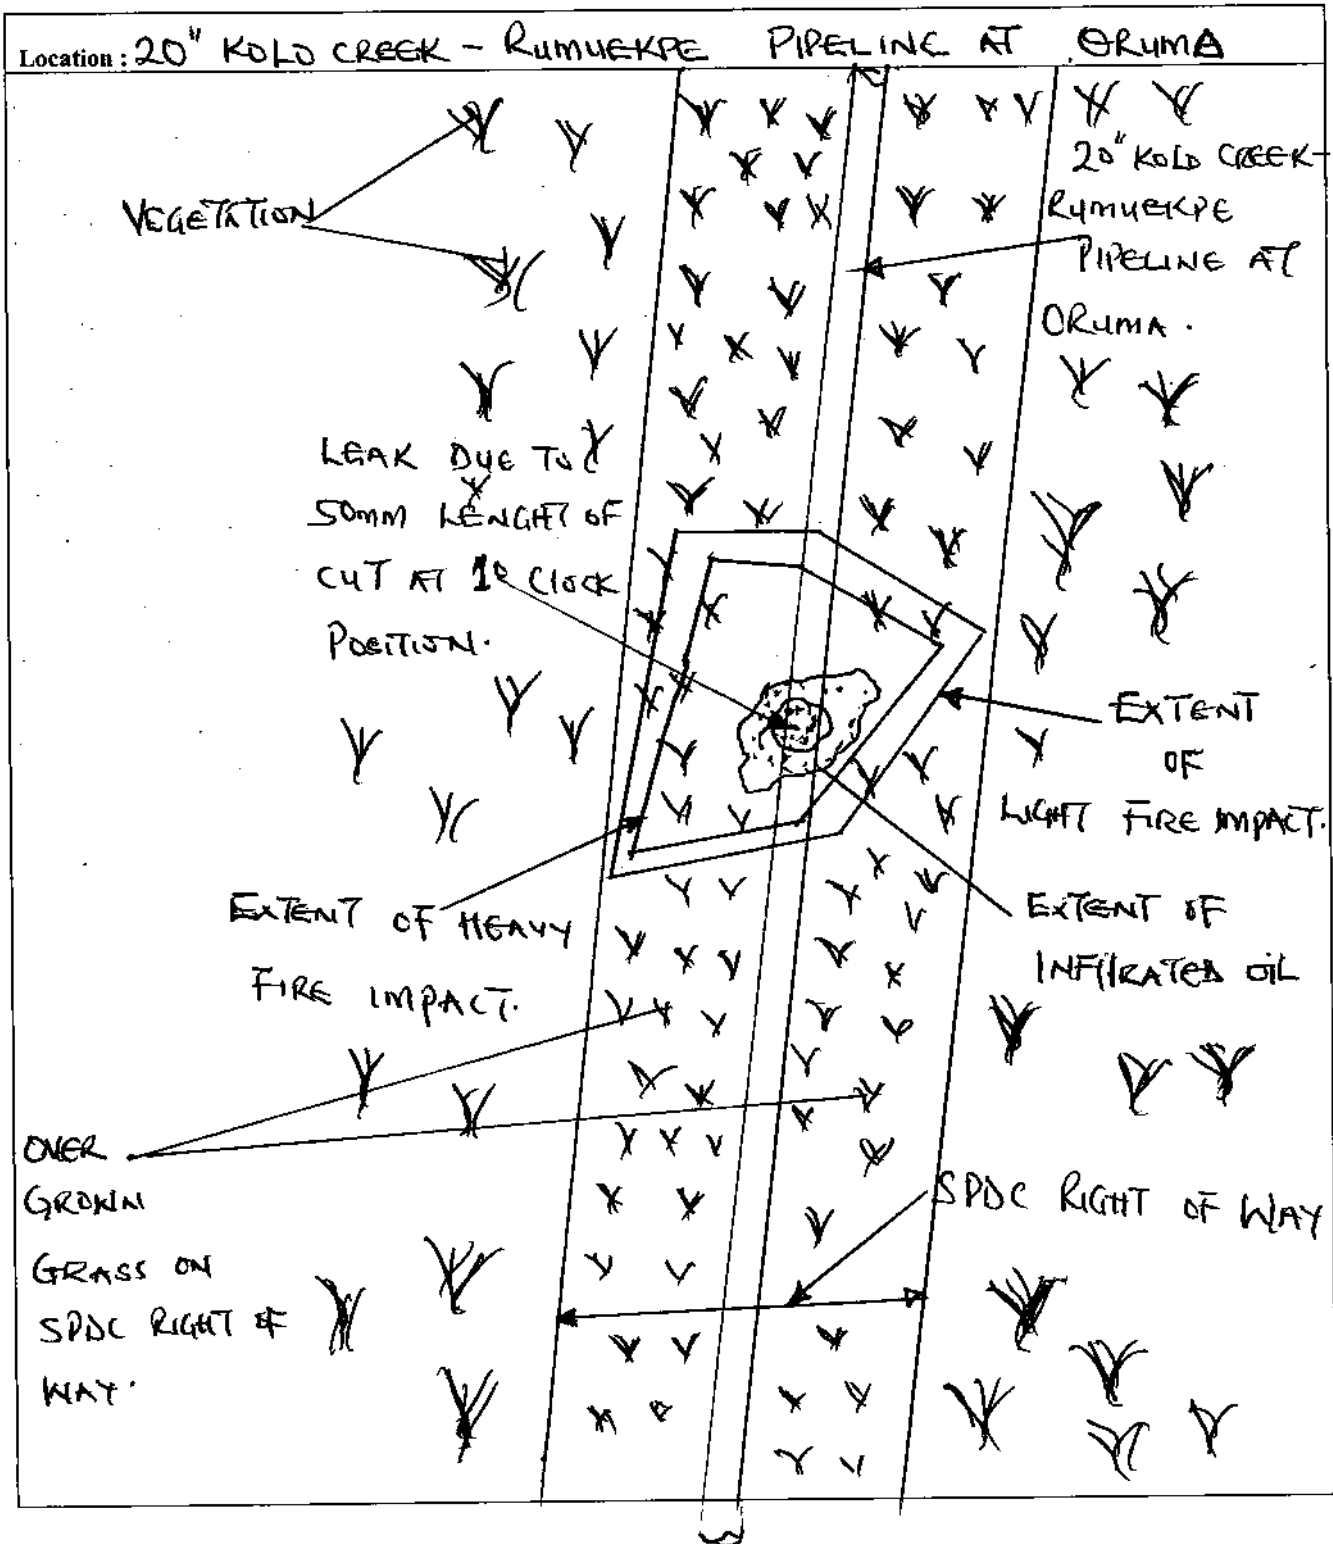 Location : 20" KOLO CREEK - RUMUEKPE PIPELINE AT ORUMA
20" KOLO CREEK-
RUMUEKPE
PIPELINE AT
ORUMA.
VEGETATION
LEAK DUE TO
50MM LENGHT OF
CUT AT 1O CLOCK
POSITION.
EXTENT
OF
LIGHT FIRE IMPACT.
EXTENT OF HEAVY
FIRE IMPACT.
EXTENT OF
INFILRATED OIL
OVER
GROWN
GRASS ON
SPDC RIGHT OF
WAY.
SPDC RIGHT OF WAY